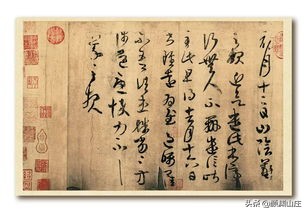 初月十二日山陰羲
之報近欲遣此書停
行無人不辦遣信昨
至此且得去月十六日
書雖遠為慰過囑卿佳
不吾諸患殊劣殊劣方
涉道憂悴力不具
羲之報
头条 @麒麟山庄